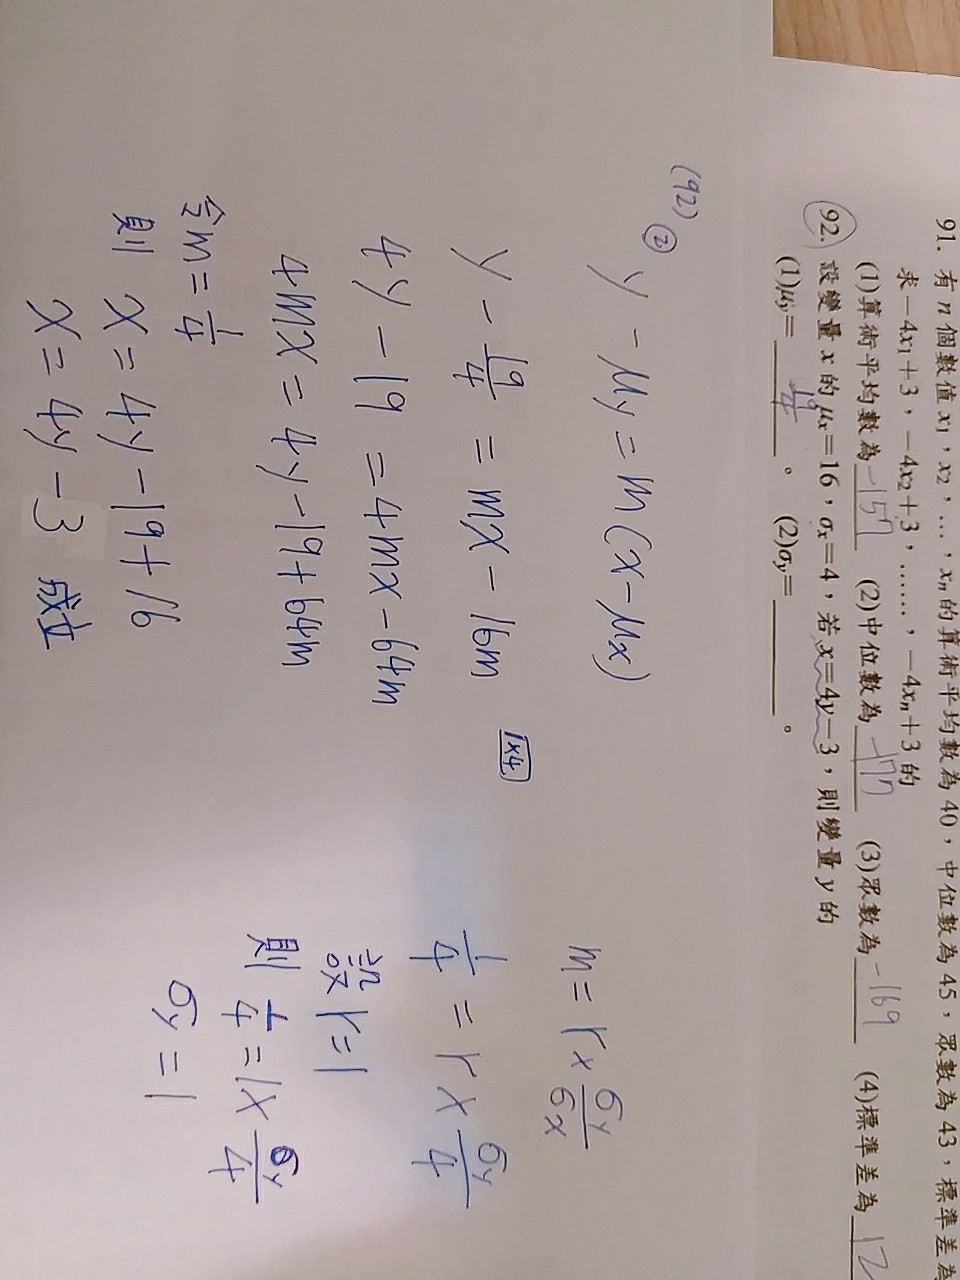 91. 有n個數值x₁，x₂，…，xₙ的算術平均數為40，中位數為45，眾數為43，標準差為
求-4x₁+3，-4x₂+3，……，-4xₙ+3的
(1)算術平均數為-157 (2)中位數為-177 (3)眾數為-169 (4)標準差為12
92. 設變量x的μₓ=16，σₓ=4，若x=4y-3，則變量y的
(1)μy=19/4。 (2)σy=______。
(92)
② y - μy = m(x - μx)
y - 19/4 = mx - 16m
1×4
4y - 19 = 4mx - 64m
4mx = 4y - 19 + 64m
令m = 1/4
則 x = 4y - 19 + 16
x = 4y - 3 成立
m = r × σy/σx
1/4 = r × σy/4
設 r = 1
則 1/4 = 1 × σy/4
σy = 1